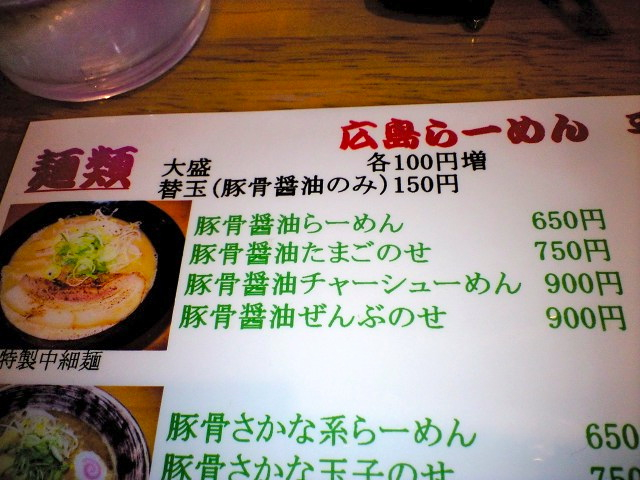 広島らーめん
麺類
大盛 各100円増
替玉(豚骨醤油のみ)150円
豚骨醤油らーめん 650円
豚骨醤油たまごのせ 750円
豚骨醤油チャーシューめん 900円
豚骨醤油ぜんぶのせ 900円
特製中細麺
豚骨さかな系らーめん 650
豚骨さかな玉子のせ 750